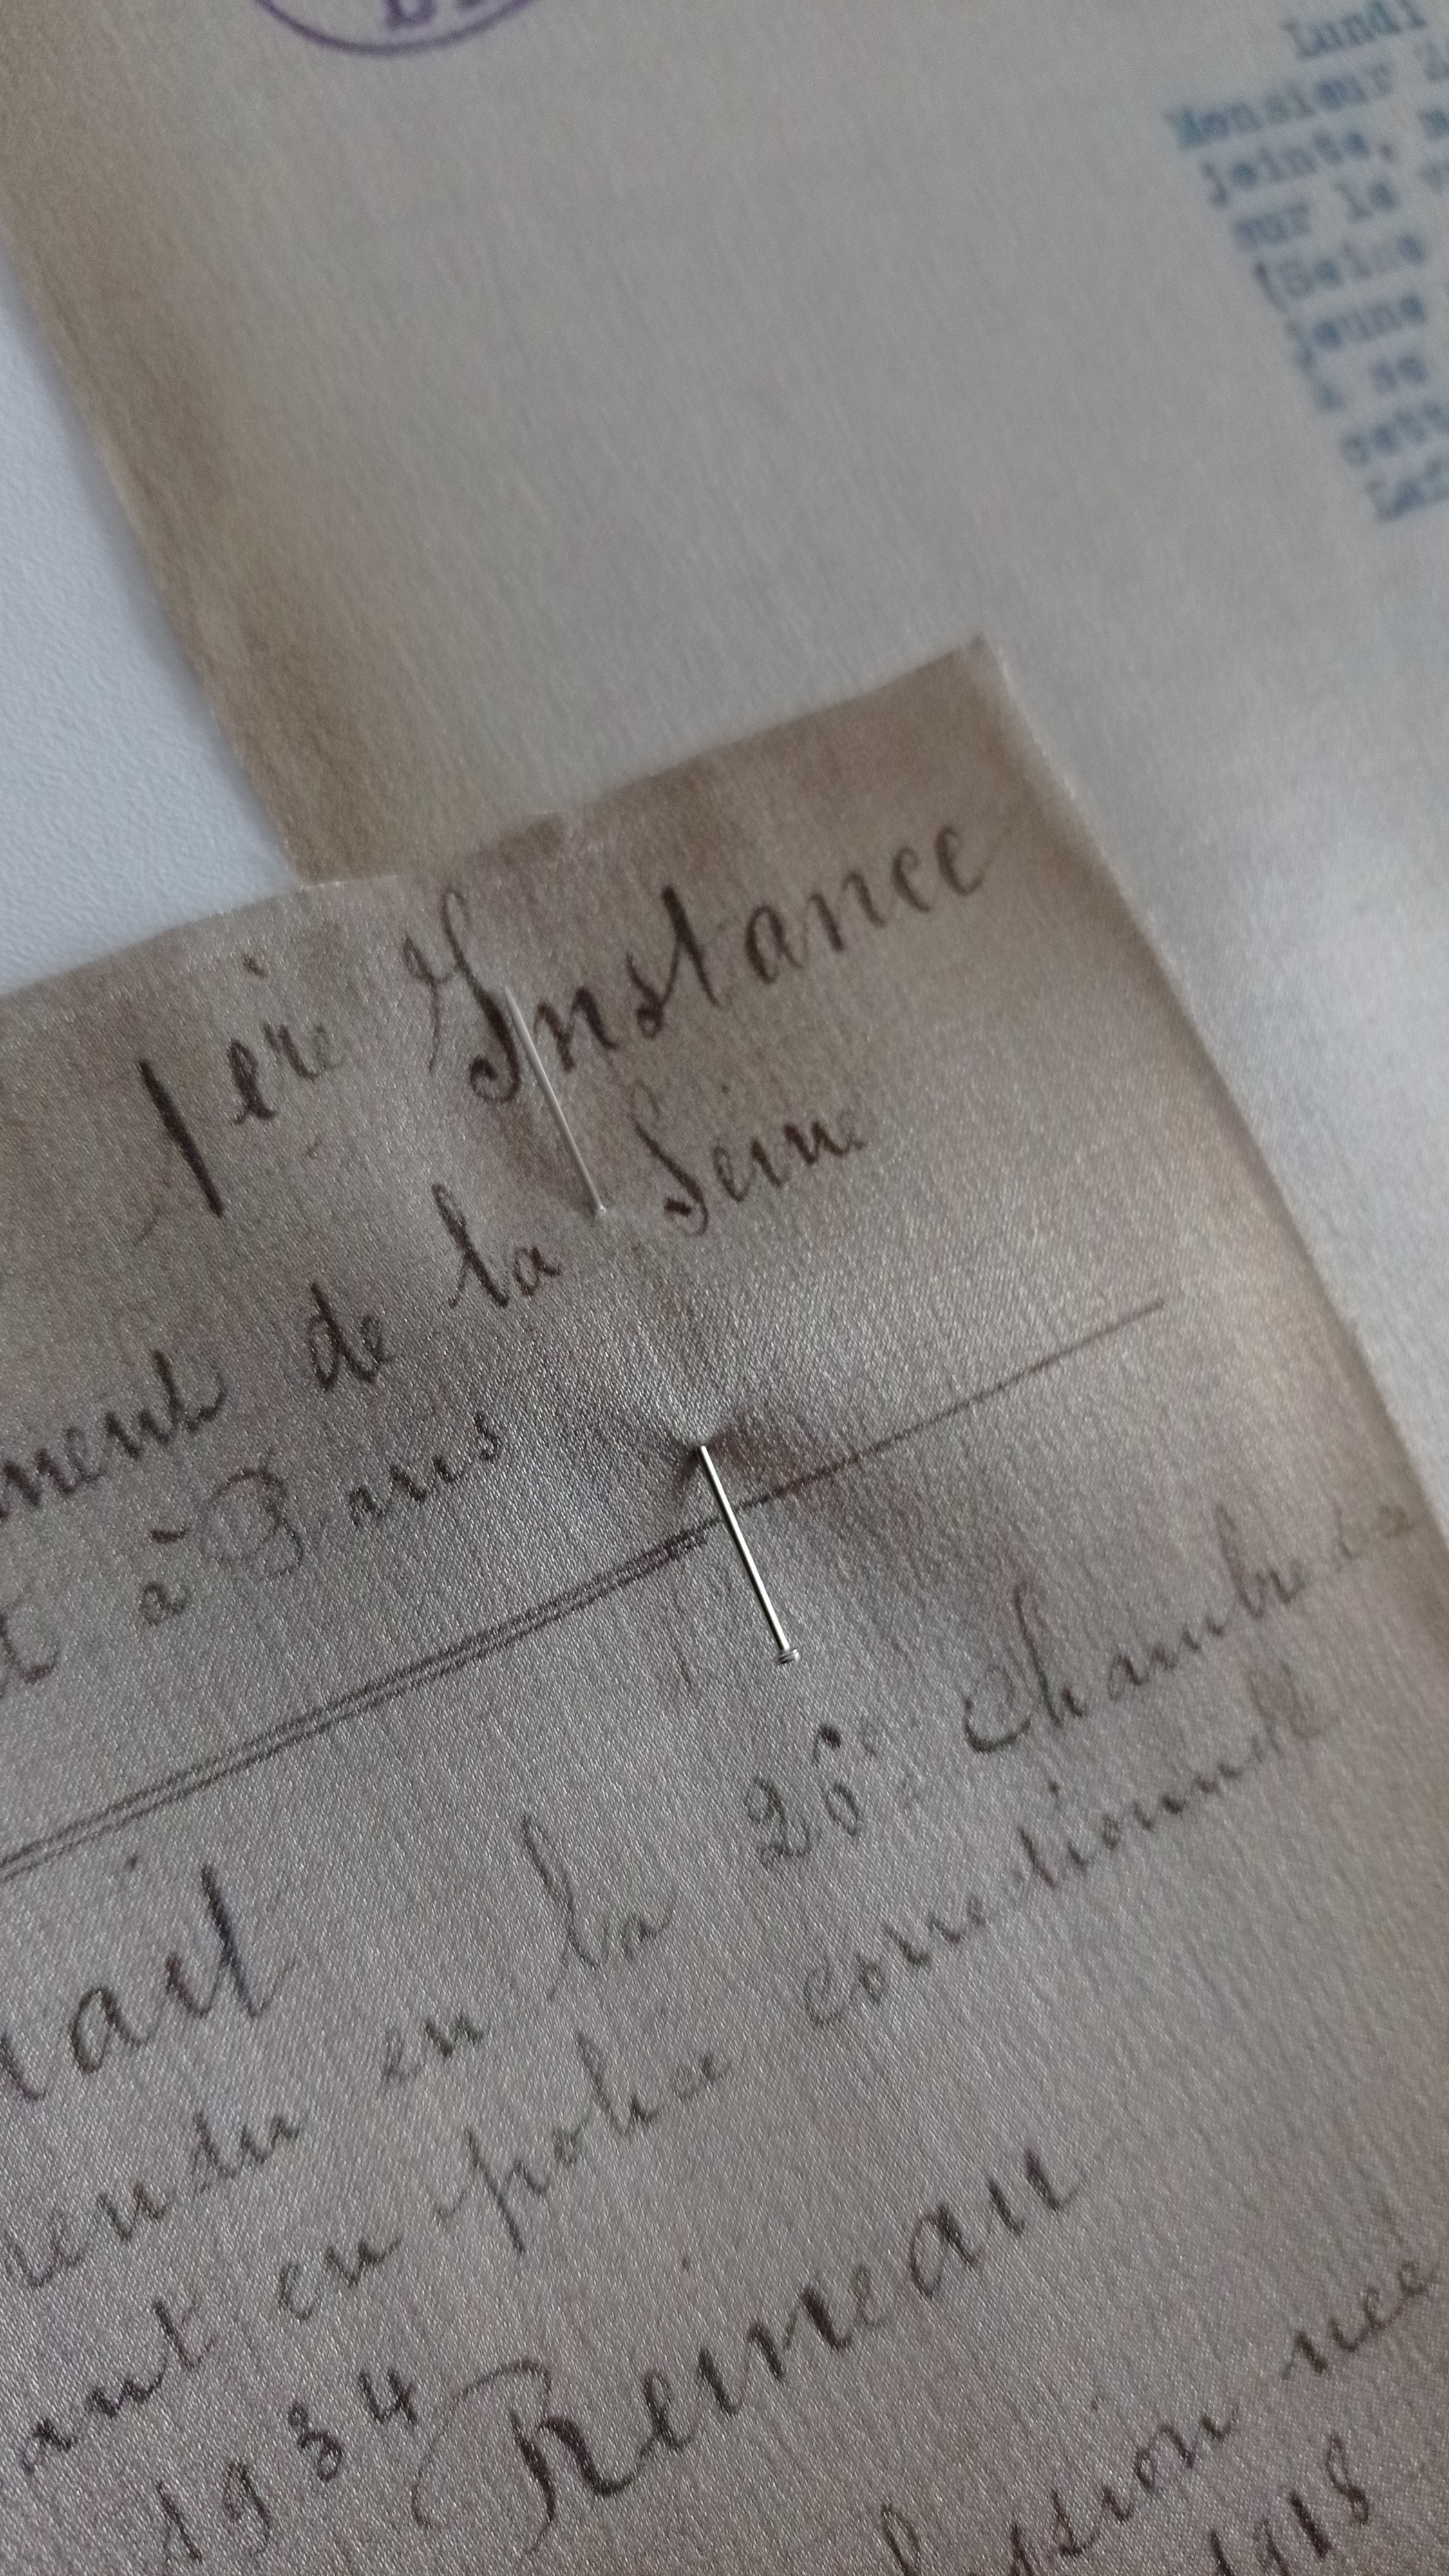 Lundi
Monsieur
jointe,
sur le
(Seine
jeune
à se
cett
1ere Instance
ment de la Seine
à Paris
ait
rendu en la 26e Chambre
ant en police correctionnelle
1934 Reineau
ession née
1918